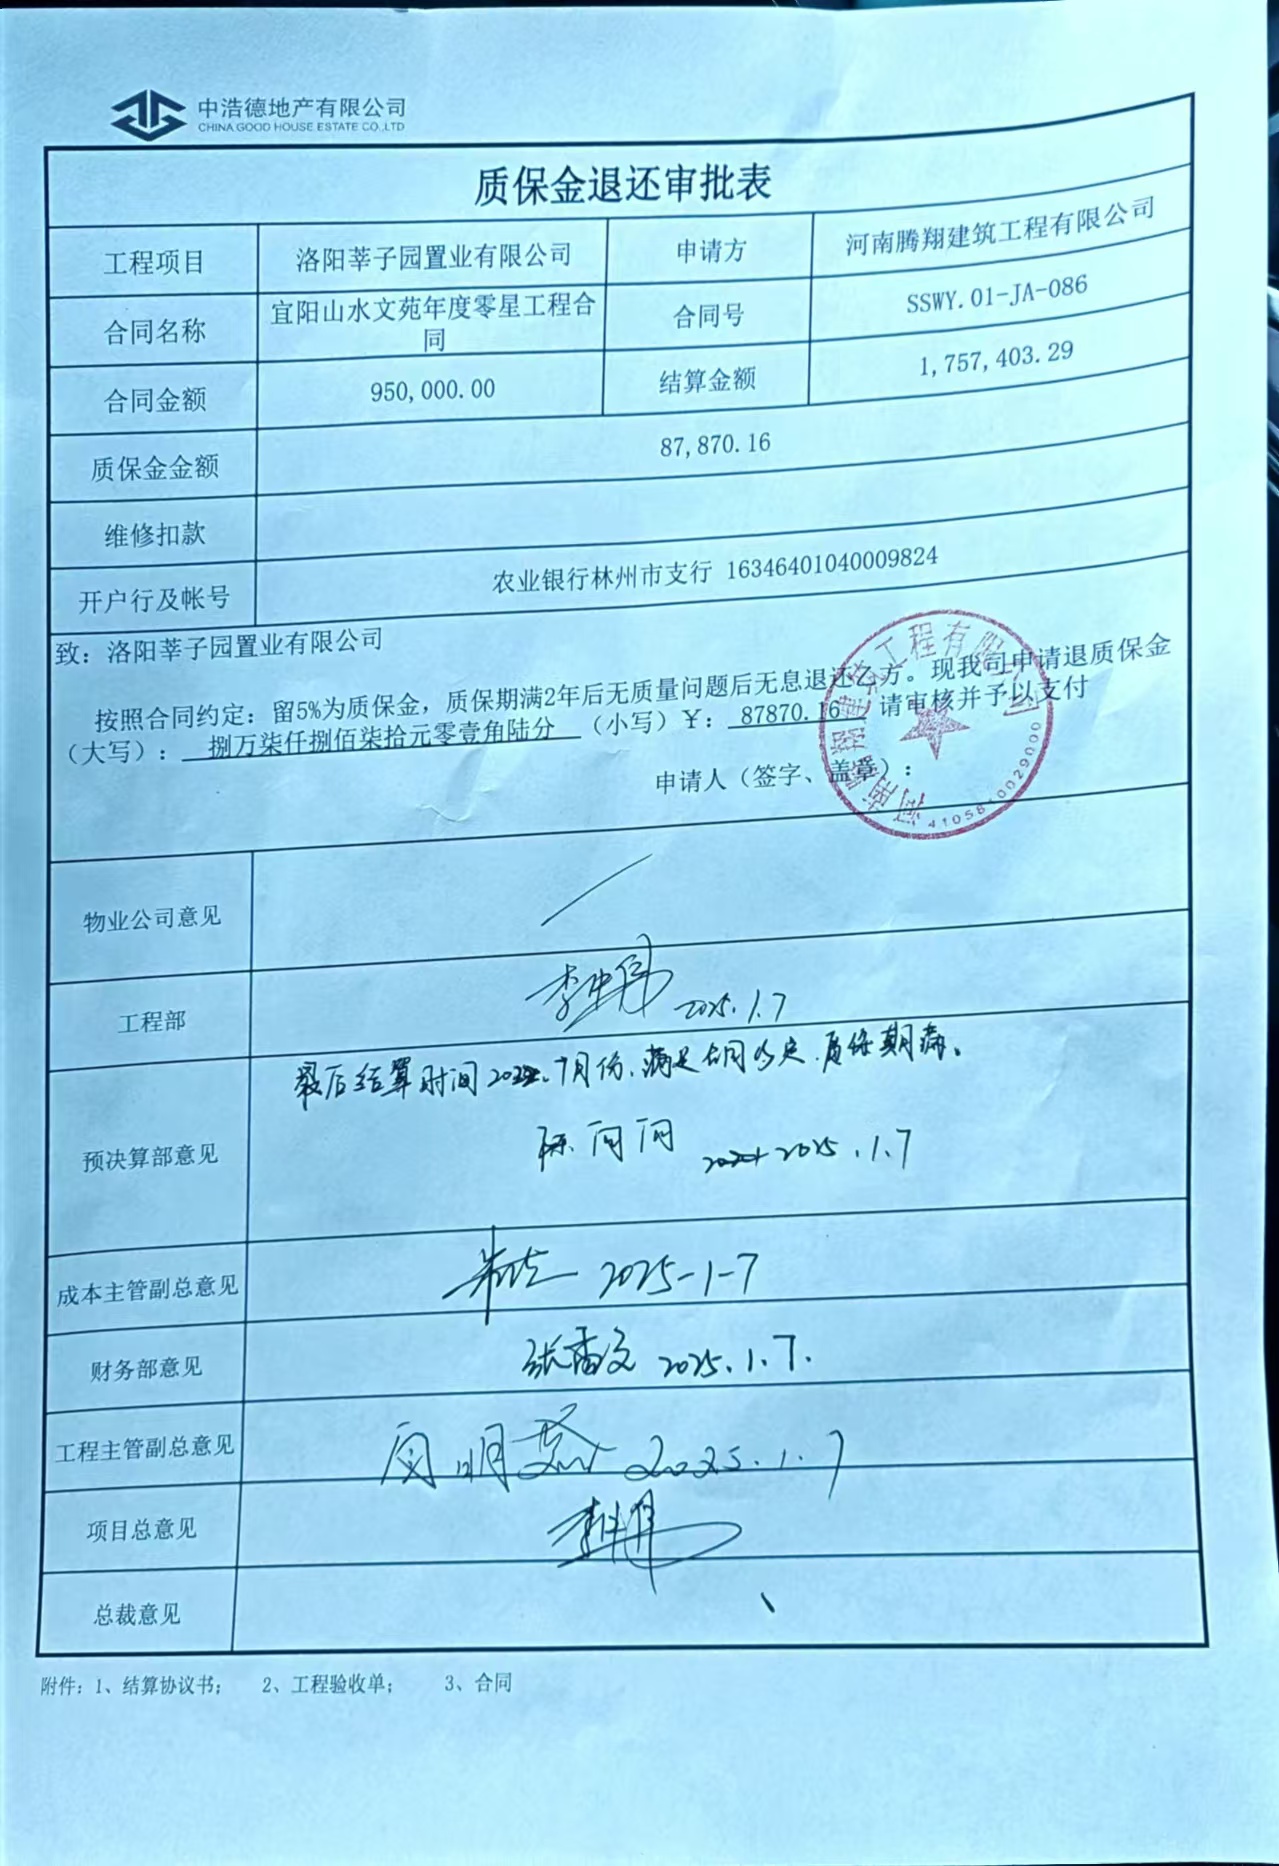 中浩德地产有限公司
CHINA GOOD HOUSE ESTATE CO.,LTD
质保金退还审批表
工程项目 洛阳莘子园置业有限公司 申请方 河南腾翔建筑工程有限公司
合同名称 宜阳山水文苑年度零星工程合同 合同号 SSWY.01-JA-086
合同金额 950,000.00 结算金额 1,757,403.29
质保金金额 87,870.16
维修扣款
开户行及帐号 农业银行林州市支行 16346401040009824
致：洛阳莘子园置业有限公司
按照合同约定：留5%为质保金，质保期满2年后无质量问题后无息退还乙方。现我司申请退质保金
（大写）： 捌万柒仟捌佰柒拾元零壹角陆分 （小写）¥： 87870.16 请审核并予以支付
申请人（签字、盖章）：
河南腾翔建筑工程有限公司
4105810029000
物业公司意见
工程部 2025.1.7
最后结算时间 月份，满足合同约定，质保期满。
预决算部意见 陈向向 2025.1.7
成本主管副总意见 2025-1-7
财务部意见 张香文 2025.1.7.
工程主管副总意见 2025.1.7
项目总意见
总裁意见
附件：1、结算协议书； 2、工程验收单； 3、合同